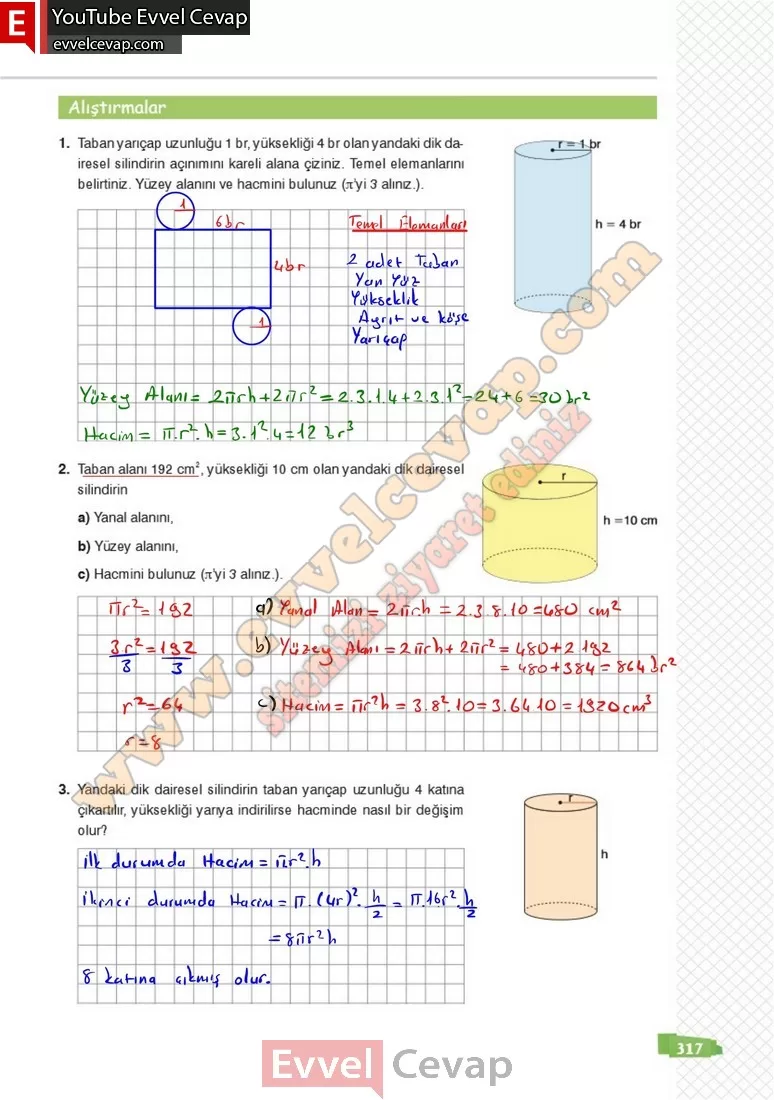 YouTube Evvel Cevap
evvelcevap.com
Alıştırmalar
1. Taban yarıçap uzunluğu 1 br, yüksekliği 4 br olan yandaki dik da-
iresel silindirin açınımını kareli alana çiziniz. Temel elemanlarını
belirtiniz. Yüzey alanını ve hacmini bulunuz (π'yi 3 alınız.).
r = 1 br
h = 4 br
1
6br
4br
1
Temel Elemanları
2 adet Taban
Yan Yüz
Yükseklik
Ayrıt ve köşe
Yarıçap
Yüzey Alanı = 2πrh + 2πr² = 2.3.1.4 + 2.3.1² = 24 + 6 = 30 br²
Hacim = π.r².h = 3.1².4 = 12 br³
2. Taban alanı 192 cm², yüksekliği 10 cm olan yandaki dik dairesel
silindirin
a) Yanal alanını,
b) Yüzey alanını,
c) Hacmini bulunuz (π'yi 3 alınız.).
r
h =10 cm
πr² = 192
3r² = 192
3 3
r² = 64
r = 8
a) Yanal Alan = 2πrh = 2.3.8.10 = 480 cm²
b) Yüzey Alanı = 2πrh + 2πr² = 480 + 2 192
= 480 + 384 = 864 br²
c) Hacim = πr²h = 3.8².10 = 3.64 10 = 1920 cm³
3. Yandaki dik dairesel silindirin taban yarıçap uzunluğu 4 katına
çıkartılır, yüksekliği yarıya indirilirse hacminde nasıl bir değişim
olur?
r
h
ilk durumda Hacim = πr².h
ikinci durumda Hacim = π.(4r)².h/2 = π.16r².h/2
= 8πr²h
8 katına çıkmış olur.
www.evvelcevap.com
sitemizi ziyaret ediniz
317
Evvel Cevap